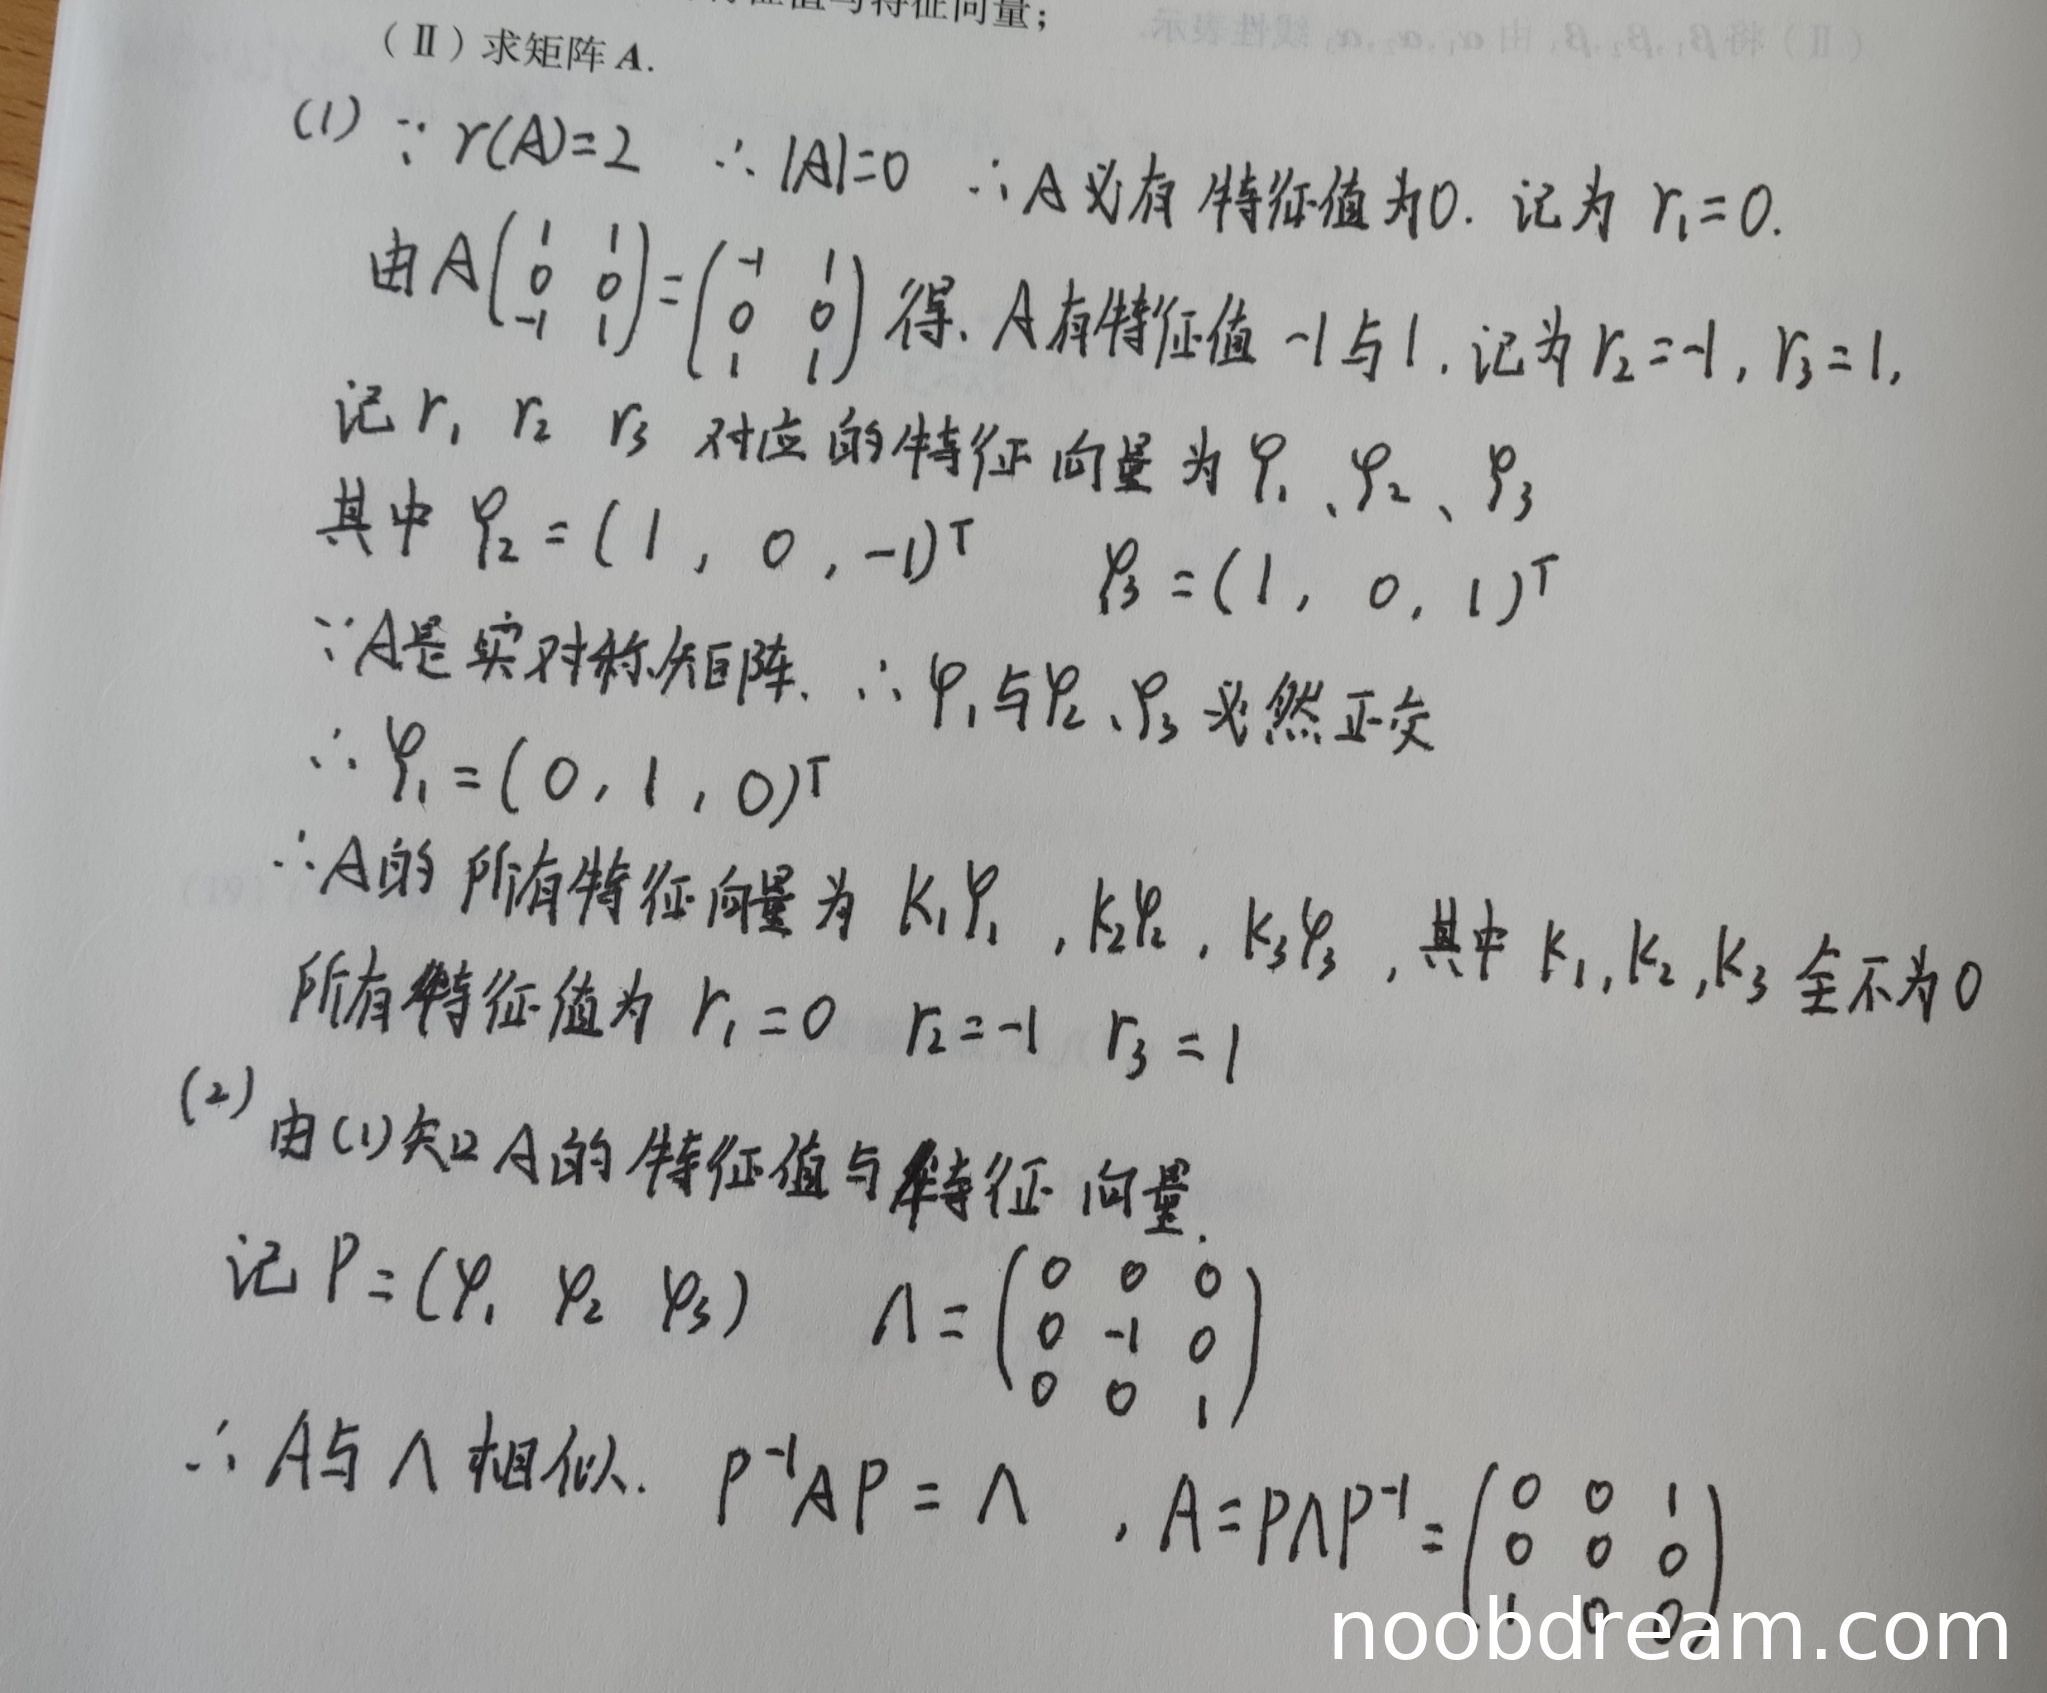 特征值与特征向量；
（Ⅱ）求矩阵 A.
(1) ∵ r(A)=2 ∴ |A|=0 ∴ A必有特征值为0. 记为 r₁=0.
由 A(1 1; 0 0; -1 1) = (-1 1; 0 0; 1 1) 得. A有特征值 -1与1. 记为 r₂=-1, r₃=1,
记 r₁ r₂ r₃ 对应的特征向量为 φ₁、φ₂、φ₃
其中 φ₂=(1, 0, -1)ᵀ φ₃=(1, 0, 1)ᵀ
∵ A是实对称矩阵. ∴ φ₁与φ₂、φ₃必然正交
∴ φ₁=(0, 1, 0)ᵀ
∴ A的所有特征向量为 k₁φ₁, k₂φ₂, k₃φ₃, 其中 k₁, k₂, k₃ 全不为0
所有特征值为 r₁=0 r₂=-1 r₃=1
(2) 由(1)知A的特征值与特征向量.
记 P=(φ₁ φ₂ φ₃) Λ=(0 0 0; 0 -1 0; 0 0 1)
∴ A与Λ相似. P⁻¹AP=Λ, A=PΛP⁻¹=(0 0 1; 0 0 0; 1 0 0)
noobdream.com